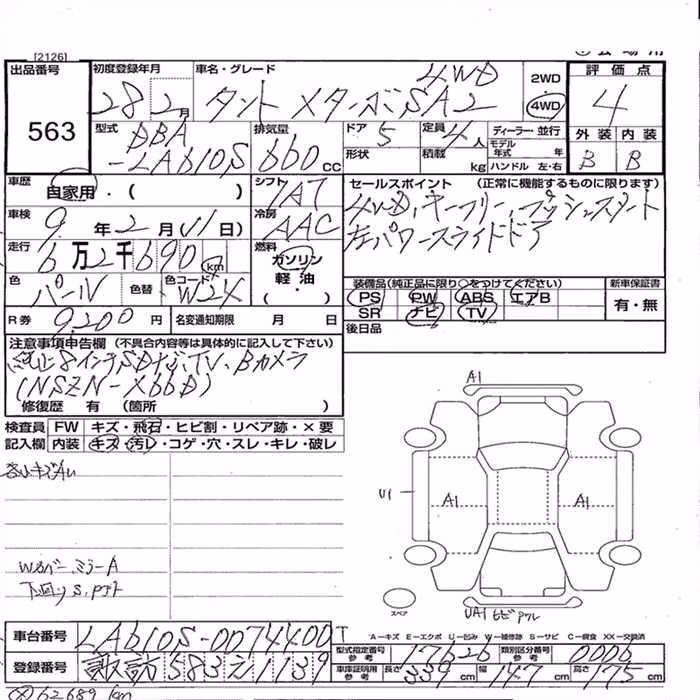 [2126]
出品番号 563
初度登録年月 28 2月
車名・グレード 4WD
タント Xターボ SA2
2WD 4WD
評価点 4
外装 内装
B B
型式 DBA
-LA610S
排気量 660 cc
ドア 5
形状
定員 4人
積載 kg
ディーラー・並行
モデル年式 年
ハンドル 左・右
車歴 自家用・( )
シフト IAT
車検 9年2月11日)
冷房 AAC
走行 6万2千690 km
燃料 ガソリン・軽油・( )
色 パール 色替 色コード W24
R券 9,200円 名変通知期限 月 日
セールスポイント (正常に機能するものに限ります)
4WD、キーフリー、プッシュスタート
左パワースライドドア
装備品(純正品に限り○をつけてください) 新車保証書
PS PW ABS エアB
SR ナビ TV
有・無
後日品
注意事項申告欄 (不具合内容等は具体的に記入して下さい)
純正8インチSDナビ、TV、Bカメラ
(NSZN-X66D)
修復歴 有 (箇所 )
検査員 FW キズ・飛石・ヒビ割・リペア跡・×要
記入欄 内装 キズ・汚レ・コゲ・穴・スレ・キレ・破レ
各小キズAU
Wカバー、ミラーA
下回りS、PTナト
A1
U1 A1 A1
スペア
UA1 ヒビアル
A−キズ E−エクボ U−凹み W−補修跡 S−サビ C−腐食 XX−交換済
車台番号 LA610S-0074400 T
型式指定番号 参考 17626 類別区分番号 参考 0006
登録番号 諏訪583え1139
車庫証明用 参考 長さ 339 cm 幅 147 cm 高さ 175 cm
62689 km